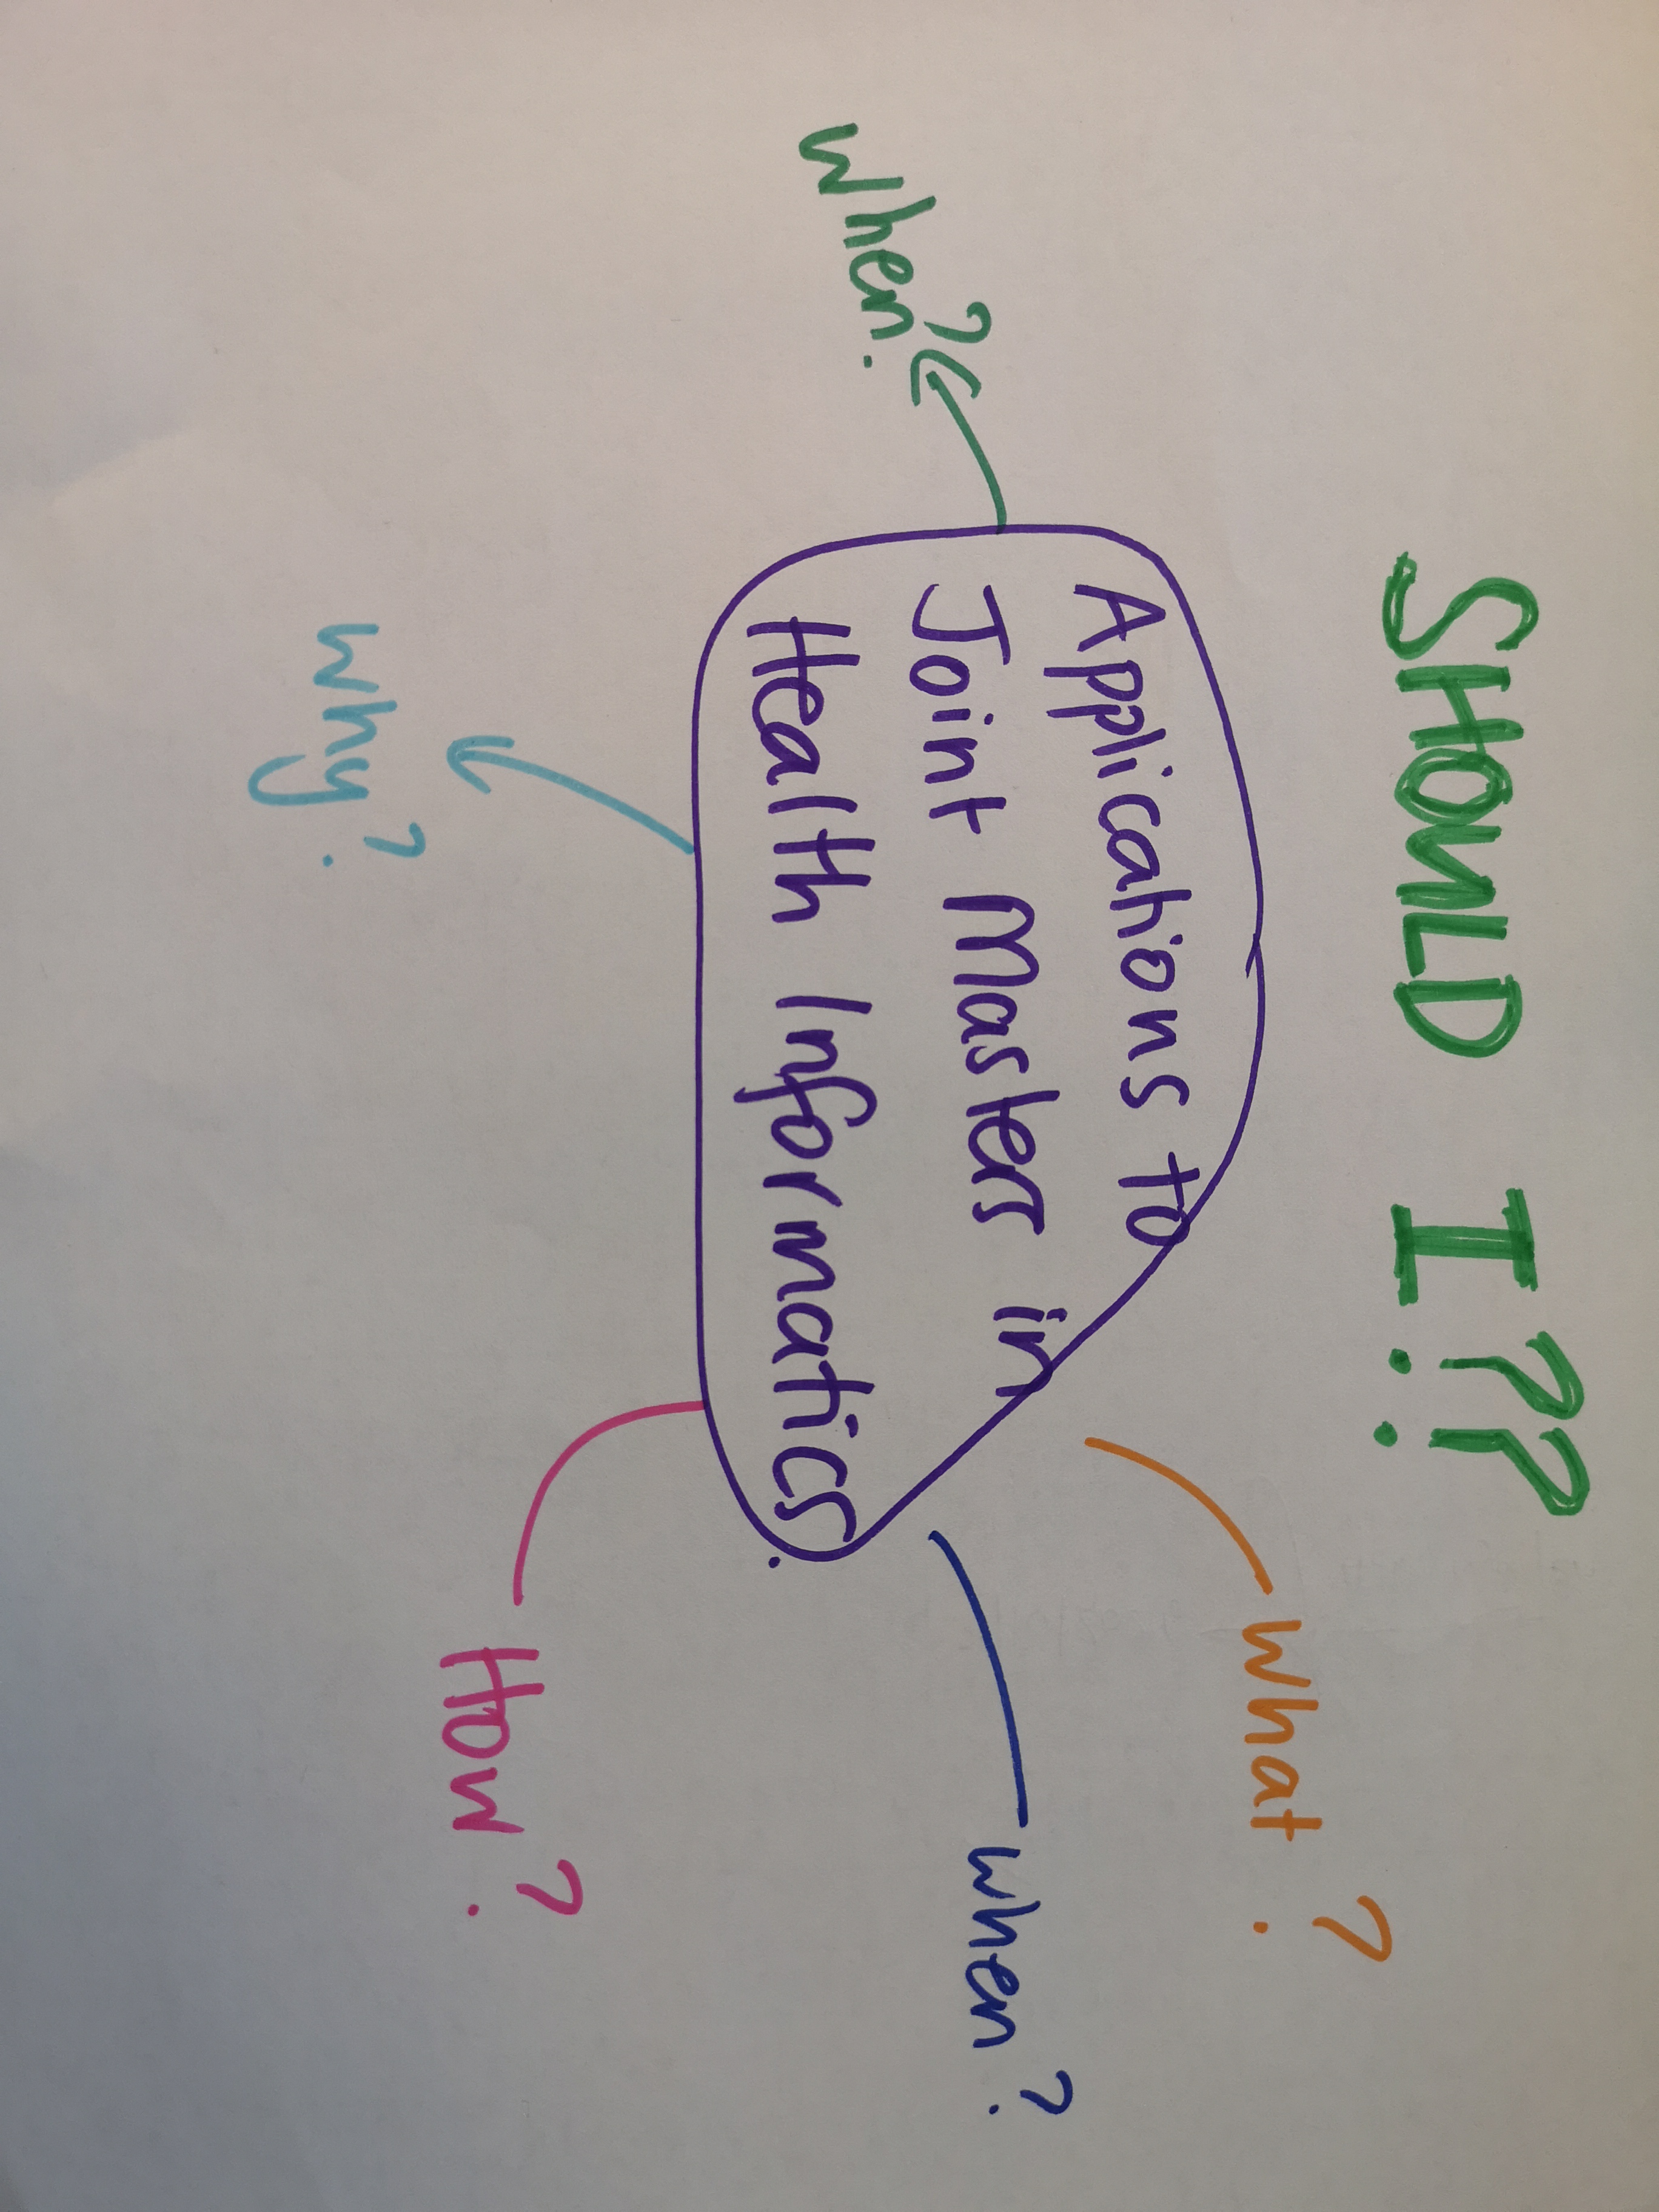 SHOULD I??
What?
When?
Applications to
Joint Masters in
Health Informatics.
When?
Why?
How?